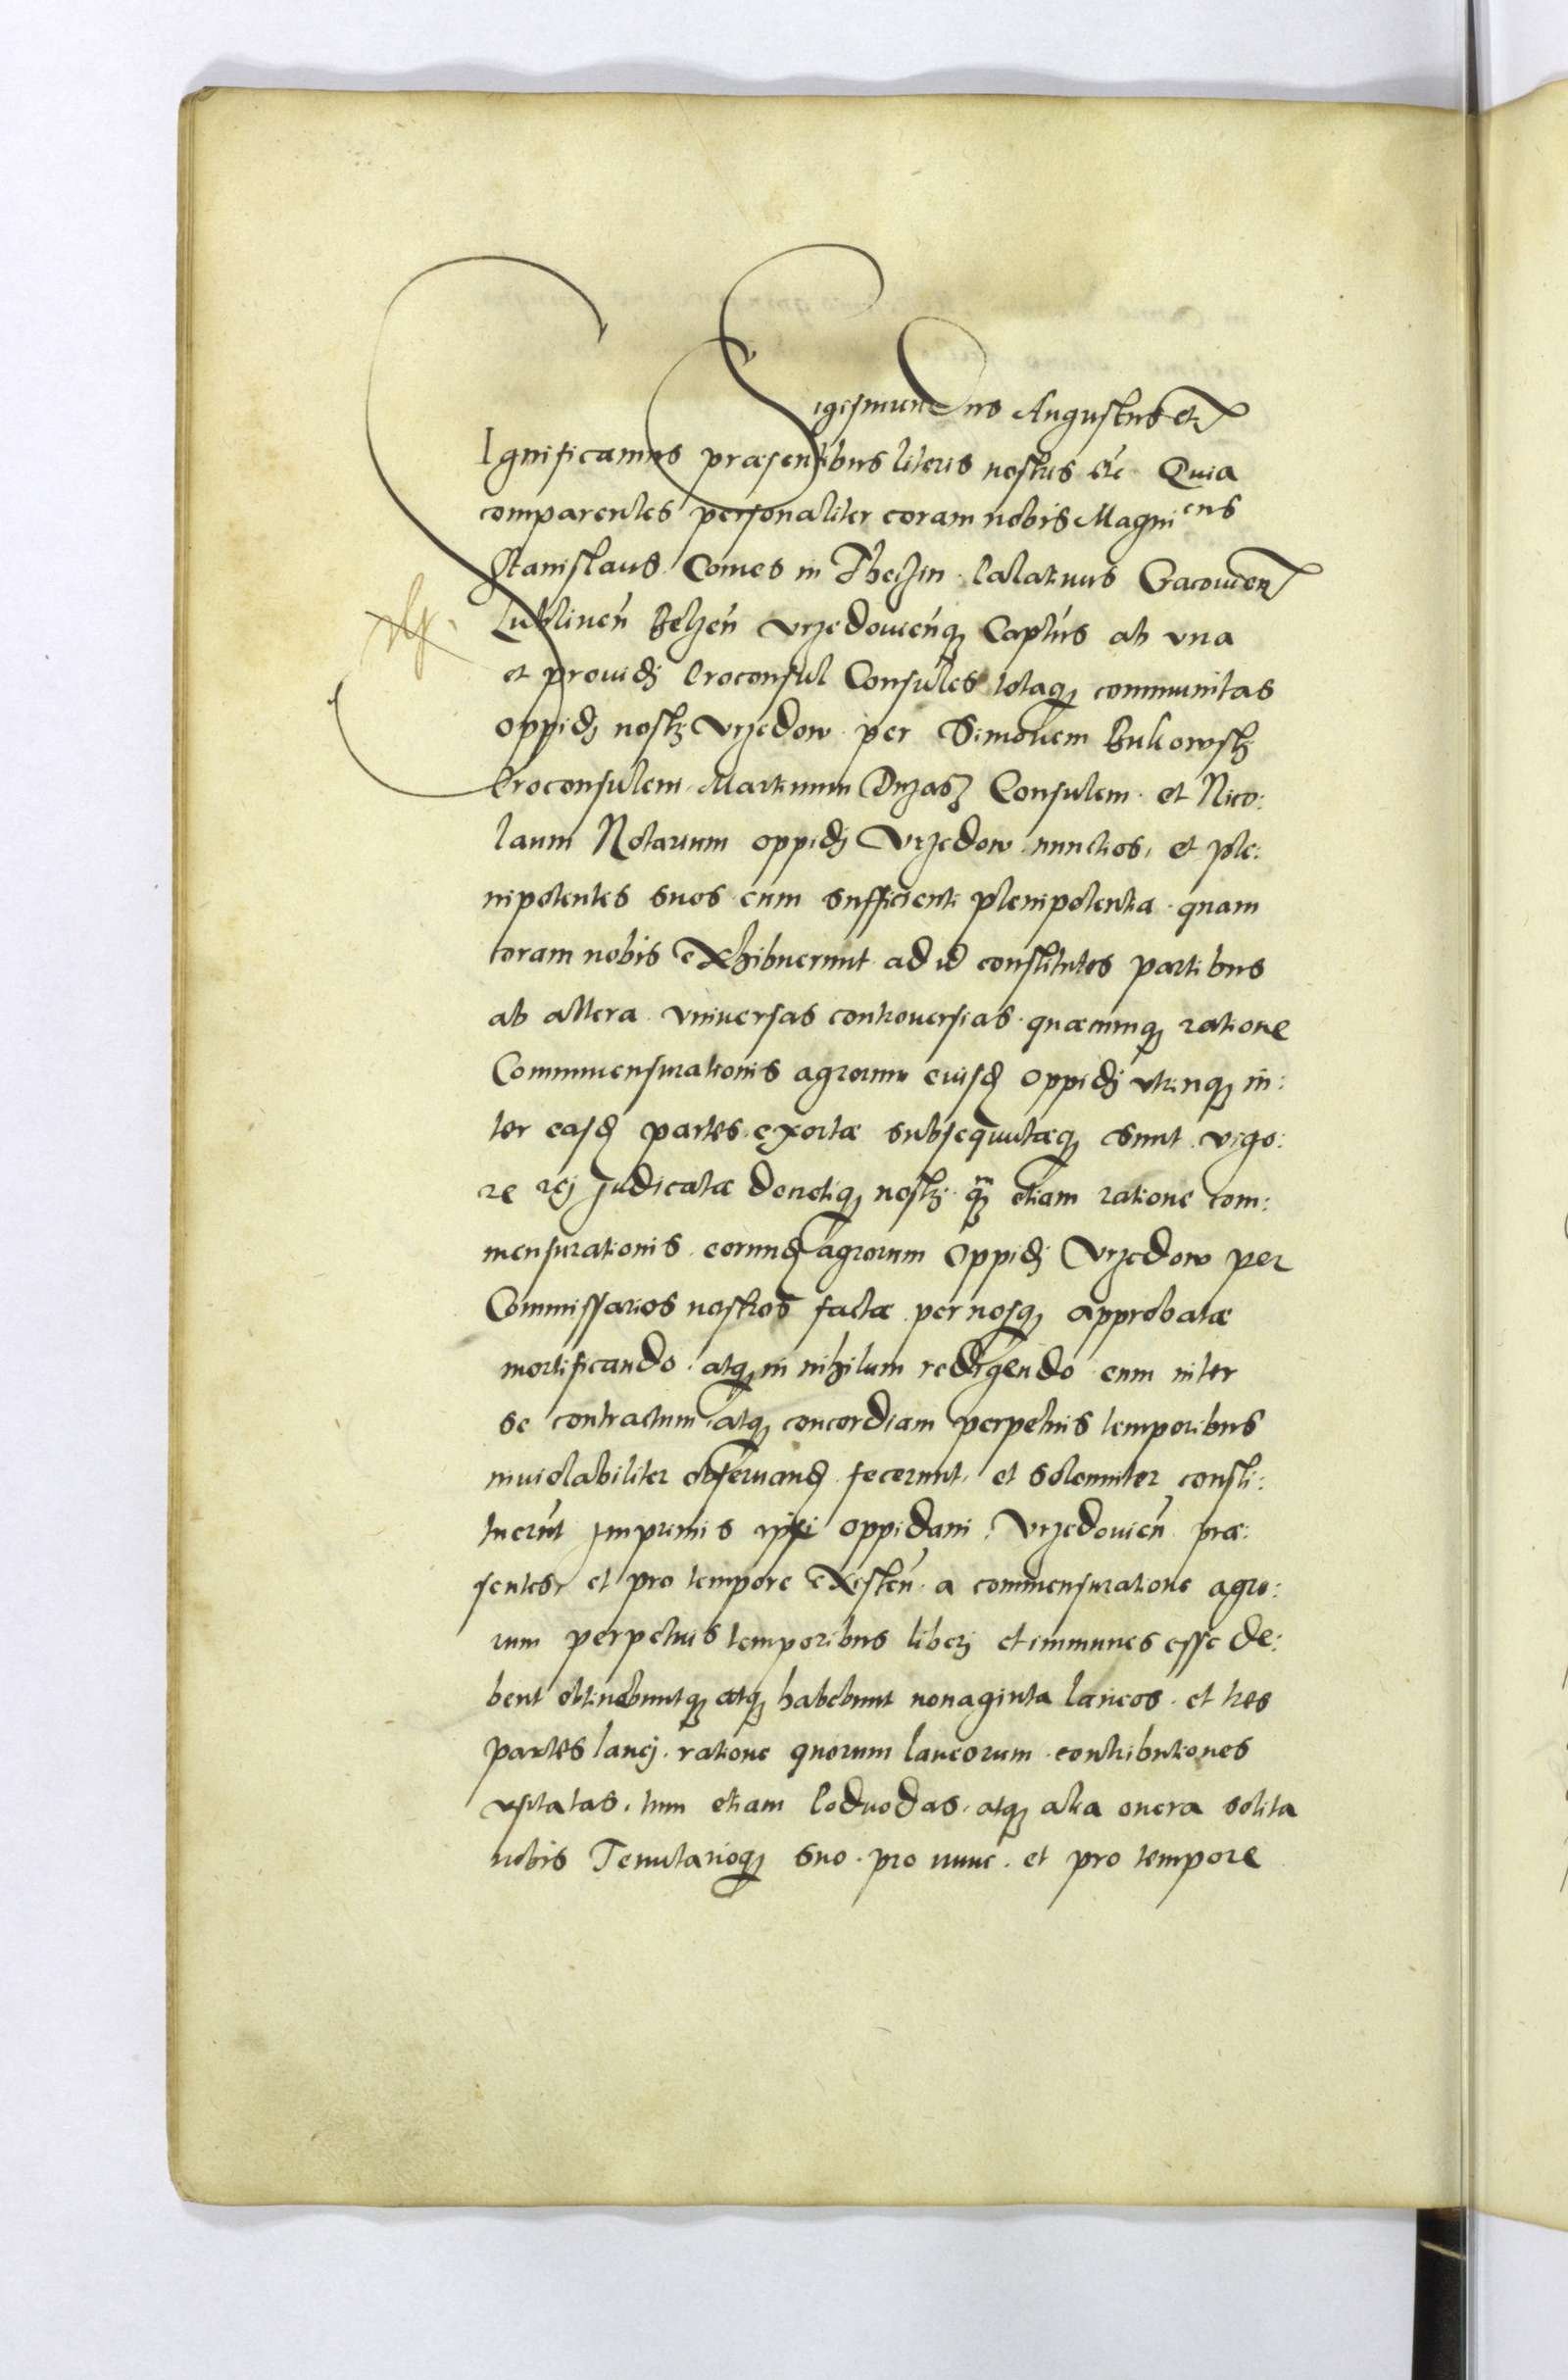 Sigismundus Augustus etc
Significamus praesentibus literis nostris etc Quia
comparentes personaliter coram nobis Magnicus
Stanislaus Comes in Theczin Palatinus Cracouien
Lublinen Belzen Vrzedouienq Captus ab vna
et prouidj Proconsul Consules totaq communitas
oppidj nostrj Vrzedow per Simonem Bukowskj
Proconsulem Martinum Consulem et Nico:
laum Notarium oppidj Vrzedow nunctios, et ple:
nipotentes suos cum sufficienti plenipotentia quam
coram nobis exhibuerunt ad id constitutos partibus
ab altera vniuersas controuersias quaecunq ratione
Commmensurationis agrorum eiusd oppidj vtrinq in:
ter easd partes exortae subsequutaeq sunt vigo:
re rej Judicatae decretiq nostrj etiam ratione com:
mensurationis eorund agrorum oppidj Vrzedow per
Commissarios nostros factae per nosq approbatae
mortificando atq in nihilum redigendo eum inter
se contractum atq concordiam perpetuis temporibus
inuiolabiliter obseruand fecerunt, et solemniter consti:
tuerunt Imprimis ipsi oppidani Vrzedouien prae:
sentes, et pro tempore existen a commensuratione agro:
rum perpetuis temporibus liberj et immunes esse de:
bent obtinebuntq atq habebunt nonaginta laneos et tres
partes lanej ratione quorum laneorum contributiones
vsitatas, tum etiam Podvodas, atq alia onera solita
nobis Tenutarioq suo pro nunc et pro tempore